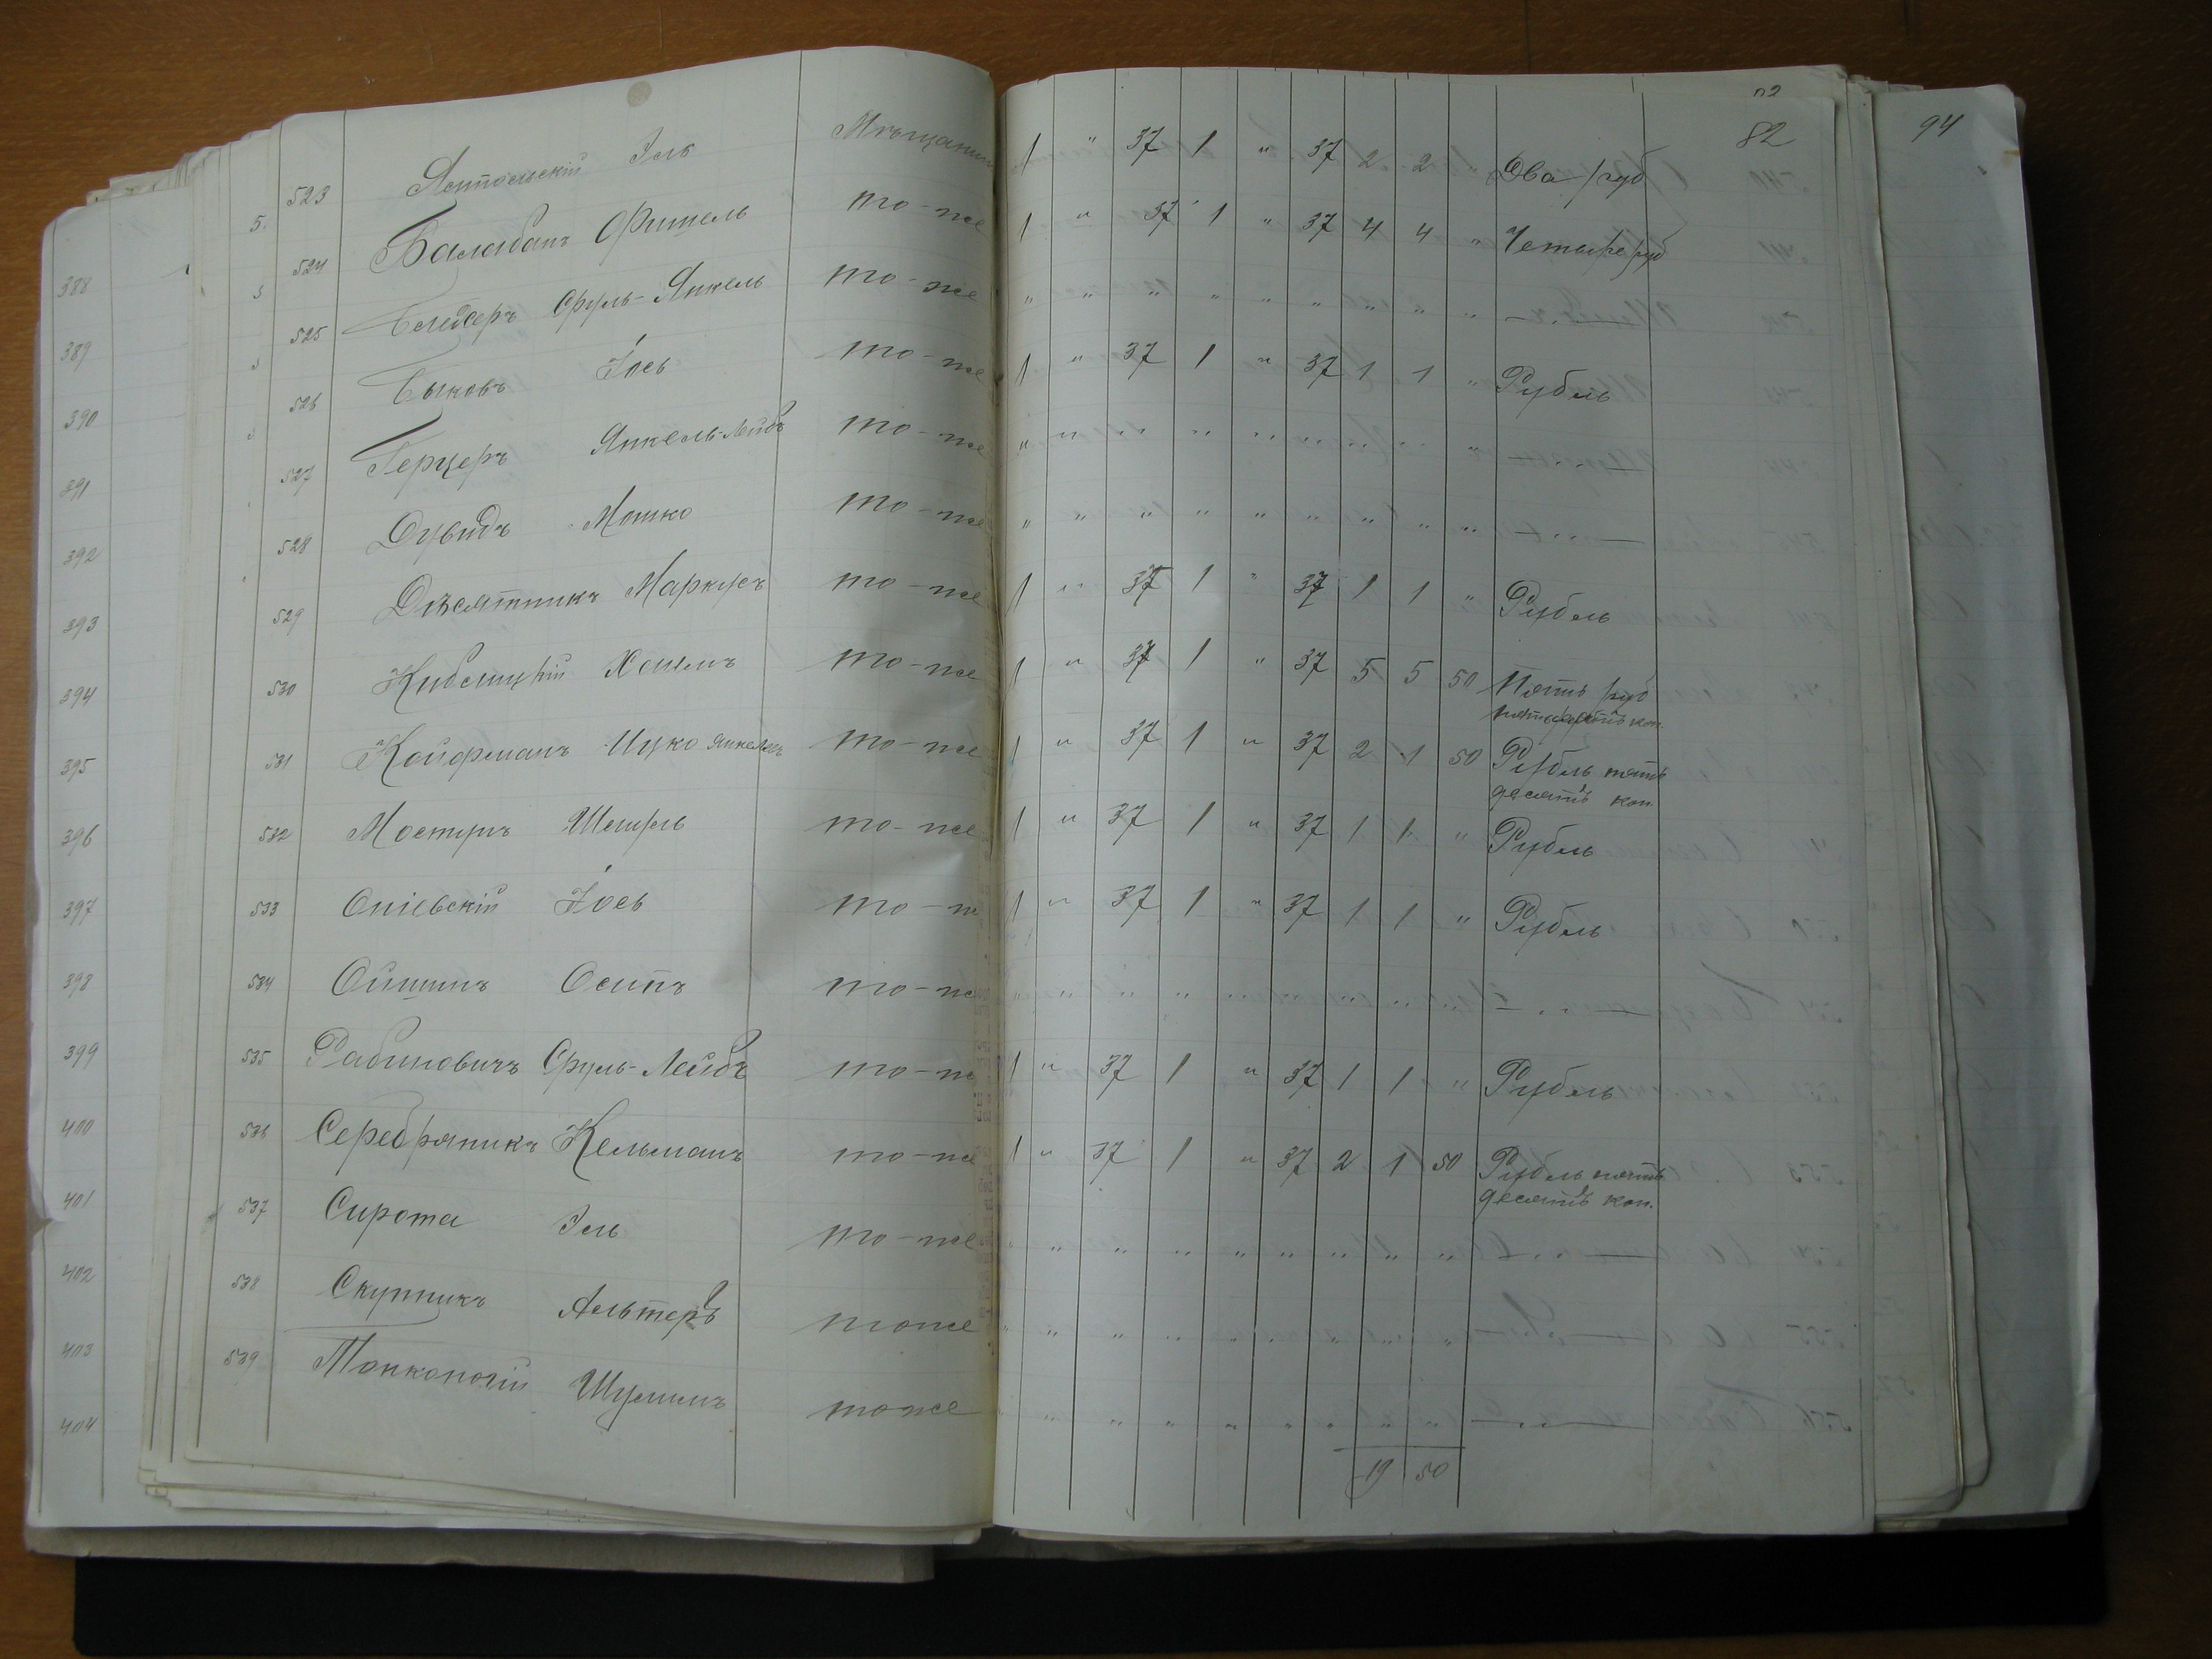 82
94
523 Ямпольскій Ісь Мѣщанин 1 " 37 1 " 37 2 2 " Два руб
524 Балабанъ Фишель то-же 1 " 37 1 " 37 4 4 " Четыре руб
525 Бендеръ Сруль-Янкель то-же " " " " " " " " "
526 Быковъ Іось то-же 1 " 37 1 " 37 1 1 " Рубль
527 Герцеръ Янкель-Лейбъ то-же " " " " " " " " "
528 Дувидъ Мошко то-же " " " " " " " " "
529 Десятникъ Маркусъ то-же 1 " 37 1 " 37 1 1 " Рубль
530 Хаимъ то-же 1 " 37 1 " 37 5 5 50 Пять руб
пятьдесятъ коп.
531 Койфманъ Ицко Янкелев то-же 1 " 37 1 " 37 2 1 50 Рубль пять
десятъ коп.
532 Шмуль то-же 1 " 37 1 " 37 1 1 " Рубль
533 Іось то-же 1 " 37 1 " 37 1 1 " Рубль
534 Ойшинъ Осипъ то-же " " " " " " " " "
535 Рабиновичъ Сруль-Лейбъ то-же 1 " 37 1 " 37 1 1 " Рубль
536 Серебряникъ Кельманъ то-же 1 " 37 1 " 37 2 1 50 Рубль пять
десятъ коп.
537 Сирота то-же " " " " " " " " "
538 Скупникъ Альтеръ тоже " " " " " " " " "
539 Тонконогій Шулимъ тоже " " " " " " " " "
19 50
388
389
390
391
392
393
394
395
396
397
398
399
400
401
402
403
404